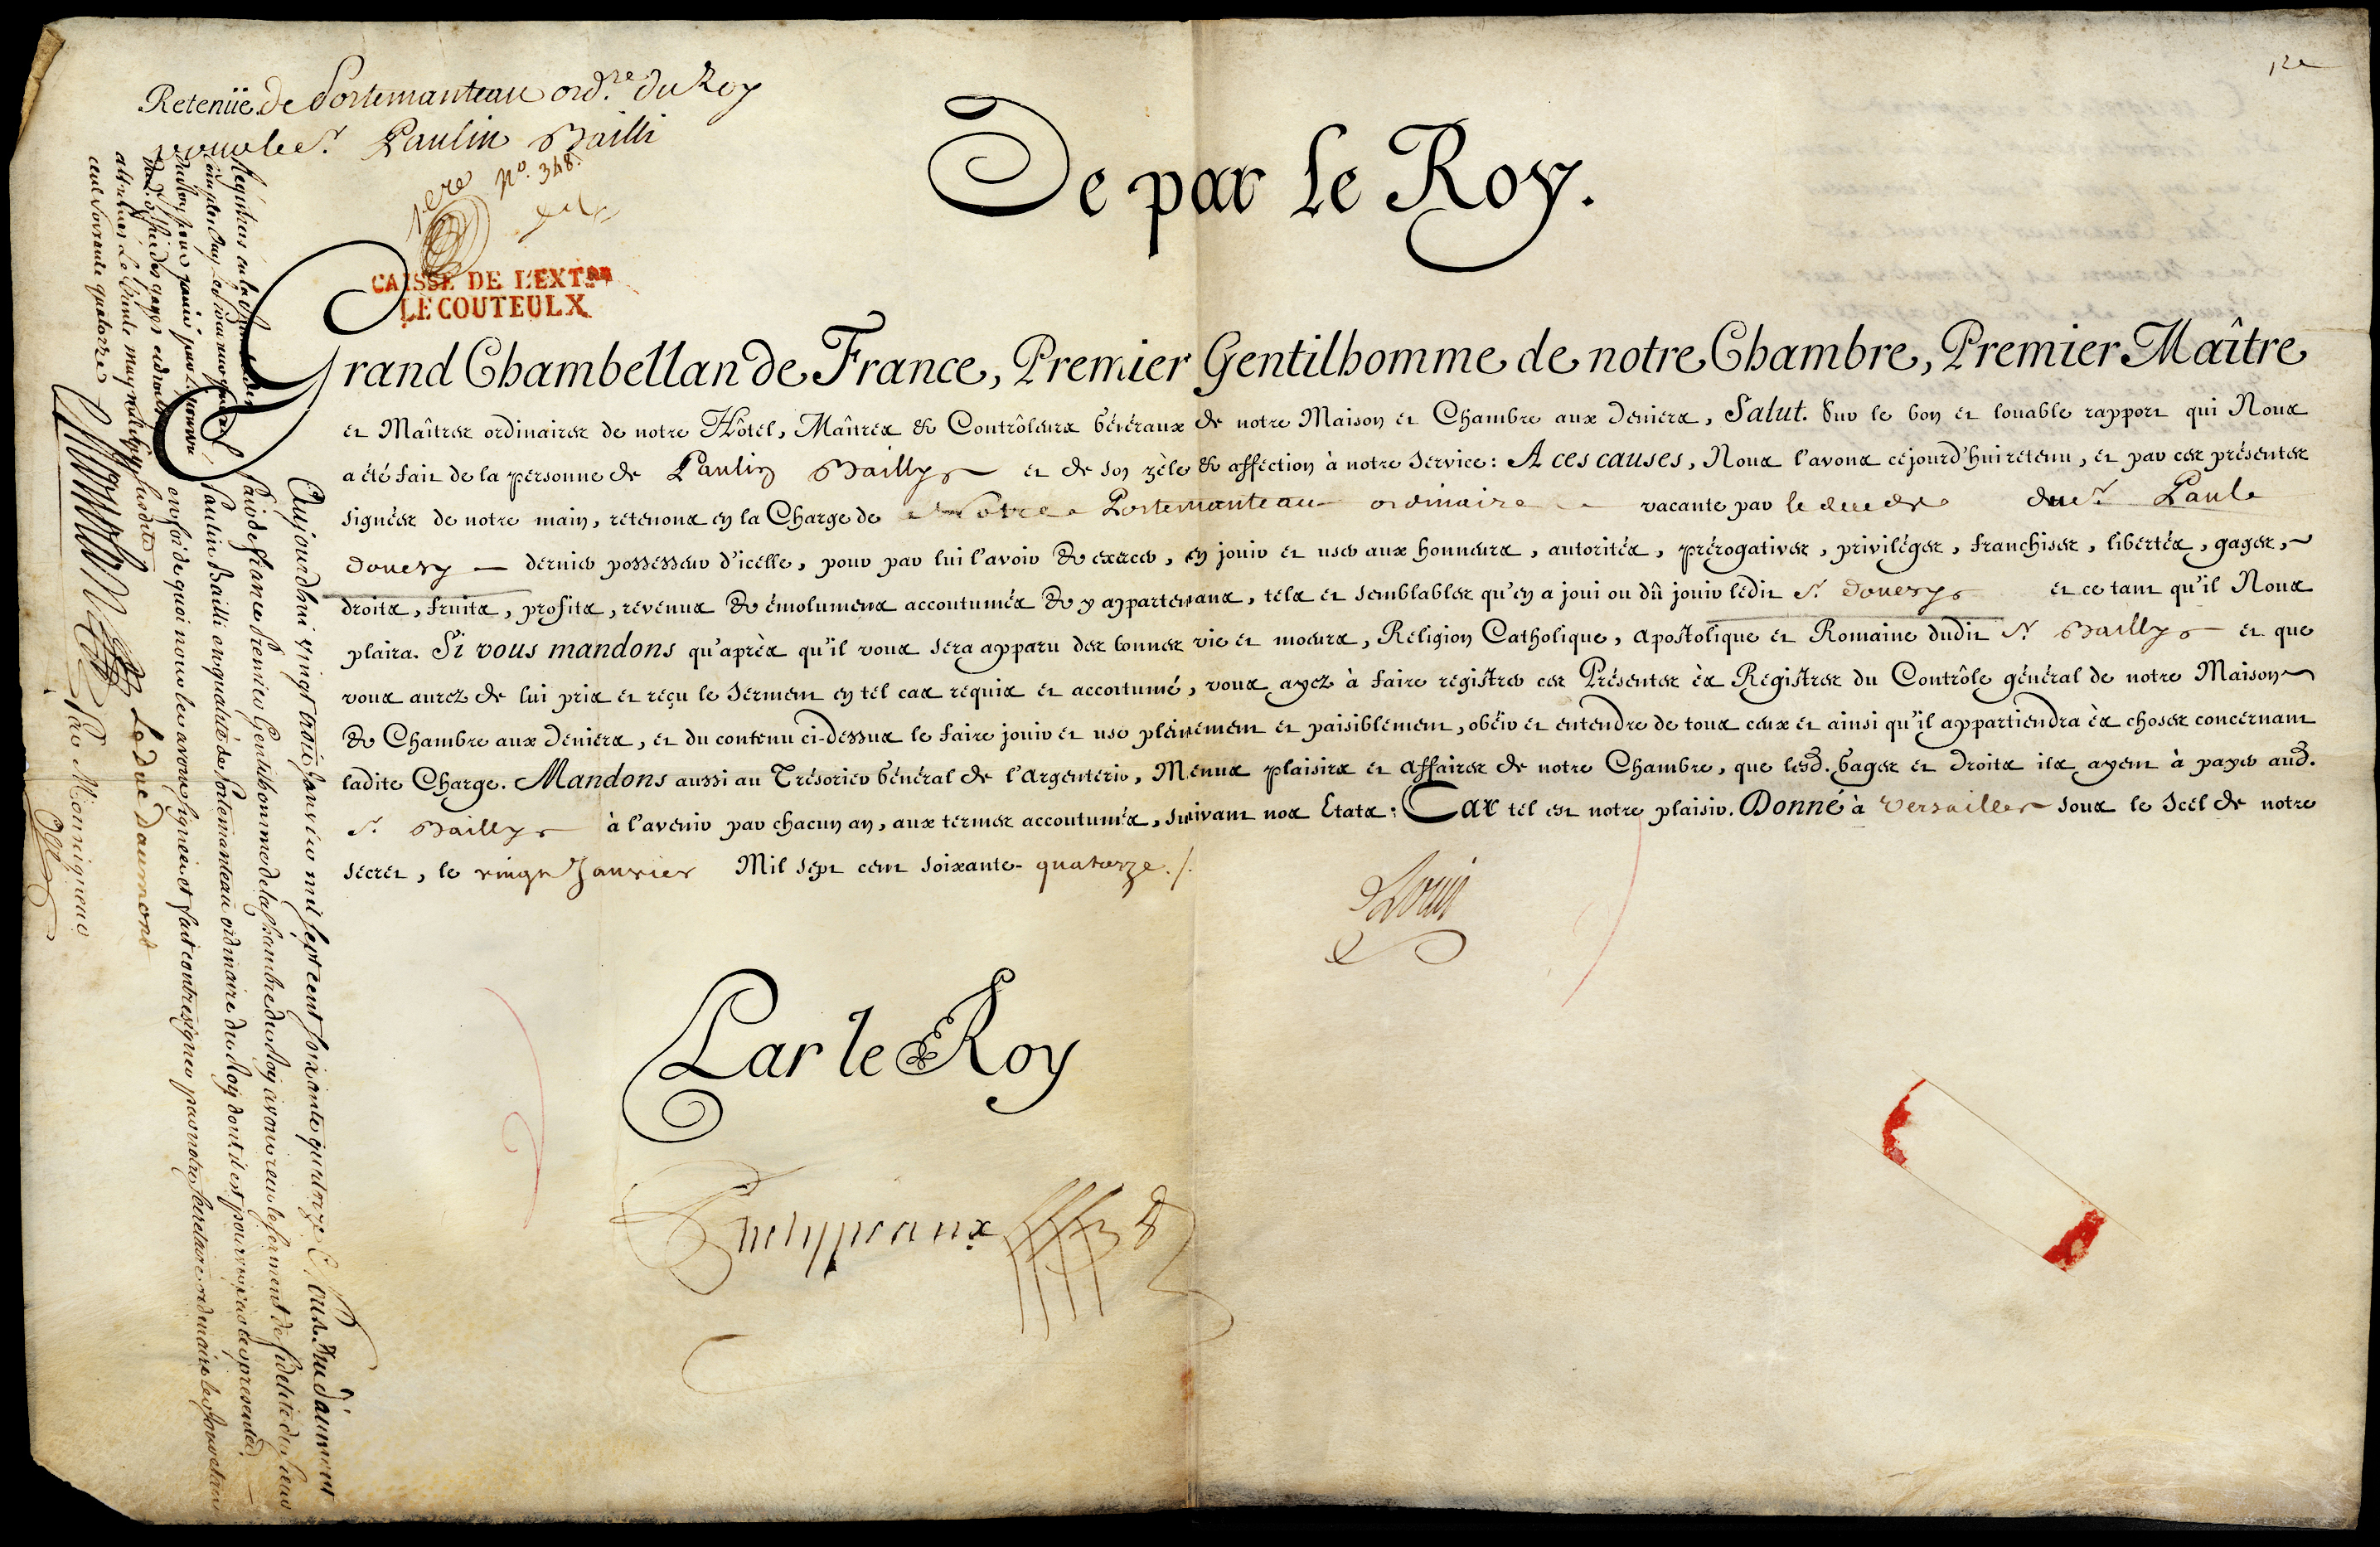 Retenüe de Portemanteau ord.re du Roy
pour le S.r Paulin Bailli
1.ere N.o 348.
CAISSE DE L'EXT.RE
LECOUTEULX
De par le Roy.
Grand Chambellan de France, Premier Gentilhomme de notre Chambre, Premier Maître
et Maîtres ordinaires de notre Hôtel, Maîtres & Contrôleurs Généraux de notre Maison et Chambre aux deniers, Salut. Sur le bon et louable rapport qui Nous
a été fait de la personne de Paulin Bailly et de son zèle & affection à notre service: A ces causes, Nous l'avons cejourd'hui retenu, et par ces présentes
signées de notre main, retenons en la Charge de Notre Portemanteau ordinaire vacante par le du S.r Paul
Douesy dernier possesseur d'icelle, pour par lui l'avoir & exercer, en jouir et user aux honneurs, autorités, prérogatives, privilèges, franchises, libertés, gages,
droits, fruits, profits, revenus & émolumens accoutumés & y appartenans, tels et semblables qu'en a joui ou dû jouir ledit S.r Douesy et ce tant qu'il Nous
plaira. Si vous mandons qu'après qu'il vous sera apparu des bonnes vie et moeurs, Religion Catholique, apostolique et Romaine dudit S.r Bailly et que
vous aurez de lui pris et reçu le serment en tel cas requis et accoutumé, vous ayez à faire registrer ces Présentes ès Registres du Contrôle général de notre Maison
& Chambre aux deniers, et du contenu ci-dessus le faire jouir et user pleinement et paisiblement, obéir et entendre de tous ceux et ainsi qu'il appartiendra ès choses concernant
ladite Charge. Mandons aussi au Trésorier Général de l'argenterie, Menus plaisirs et affaires de notre Chambre, que lesd. Gages et droits ils ayent à payer aud.
S.r Bailly à l'avenir par chacun an, aux termes accoutumés, suivant nos Etats: Car tel est notre plaisir. Donné à Versailles sous le Scel de notre
secret, le vingt Janvier Mil sept cent soixante-quatorze./.
Louis
Par le Roy
Phelypeaux
Aujourdhui vingt trois Janvier mil sept cent soixante quatorze Nous Duc d'aumont
Pair de france Premier Gentilhomme de la Chambre du Roy avons reçu le serment de fidelité du Sieur
Paulin Bailli en qualité de Portemanteau ordinaire du Roy dont il est pourvu par les presentes
en foi de quoi nous les avons signées et fait contresigner par notre secretaire ordinaire les jour et an
susdits
Le duc Daumont
Par Monseigneur